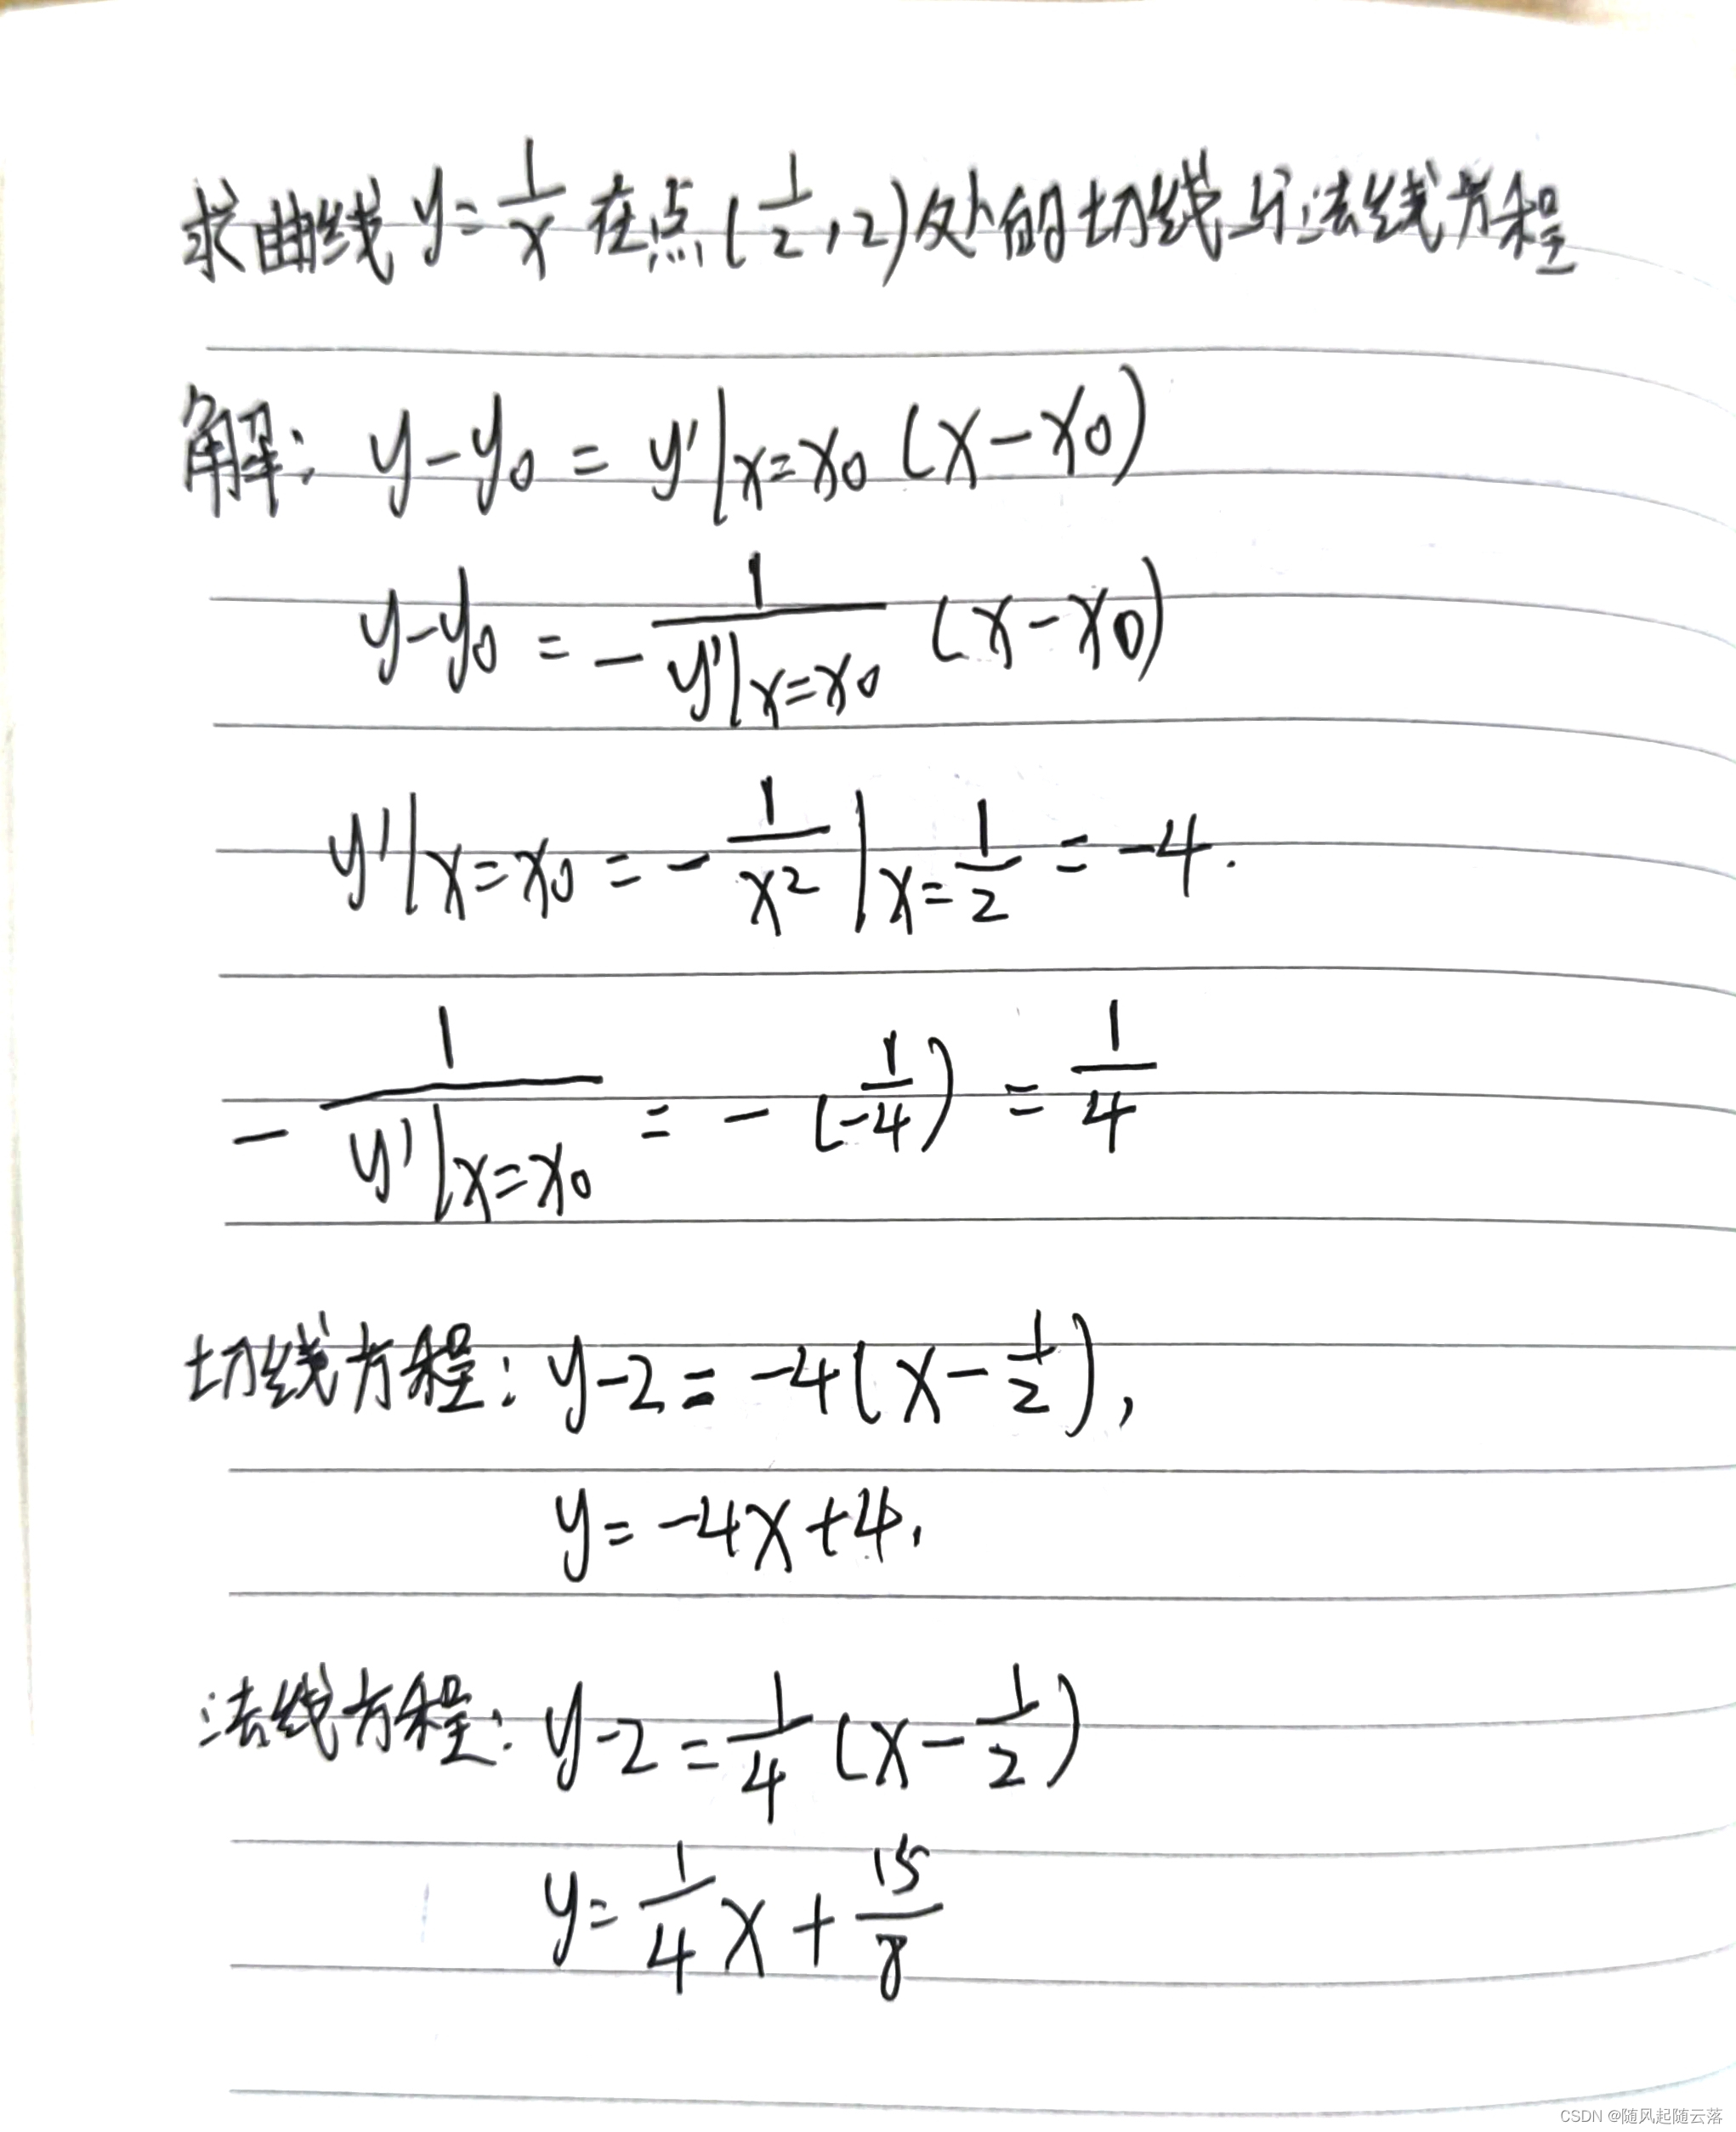 求曲线 y=1/x 在点(1/2,2)处的切线与法线方程
解: y-y₀ = y'|x=x₀ (x-x₀)
y-y₀ = - 1/(y'|x=x₀) (x-x₀)
y'|x=x₀ = - 1/x² |x=1/2 = -4.
- 1/(y'|x=x₀) = - (1/-4) = 1/4
切线方程: y-2 = -4(x-1/2),
y = -4x+4.
法线方程: y-2 = 1/4 (x-1/2)
y = 1/4 x + 15/8
CSDN @随风起随云落